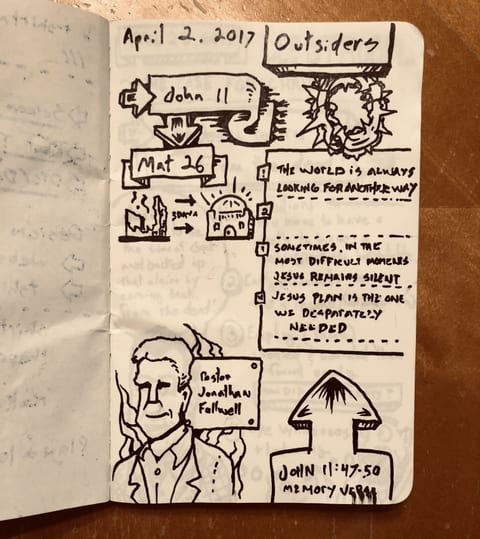 April 2. 2017
Outsiders
John 11
Mat 26
3 DAYS
1 THE WORLD IS ALWAYS
LOOKING FOR ANOTHER WAY
2
SOMETIMES, IN THE
MOST DIFFICULT MOMENTS
JESUS REMAINS SILENT
4 JESUS PLAN IS THE ONE
WE DESPARATELY
NEEDED
Pastor
Jonathan
Fallwell
JOHN 11:47-50
MEMORY VERSE